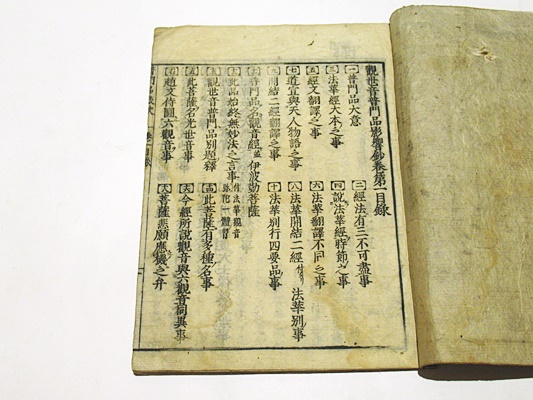 觀世音普門品影響鈔卷第一目録
一 普門品大意
二 經法有三不可盡事
三 法華經大本之事
四 說法華經時節之事
五 經文翻譯之事
六 法華翻譯不同之事
七 道宣與天人物語之事
八 法華開結二經 法華別事
九 開結二經翻譯之事
十 法華別行四要品事
普門品名觀音經並伊波勒菩薩
此品始終無妙法之言事
觀世音普門品別題釋
此菩薩有多種名事
此菩薩名光世音事
今經所說觀音與六觀音同異事
趙文侍圖六觀音事
菩薩悲願應機之弁